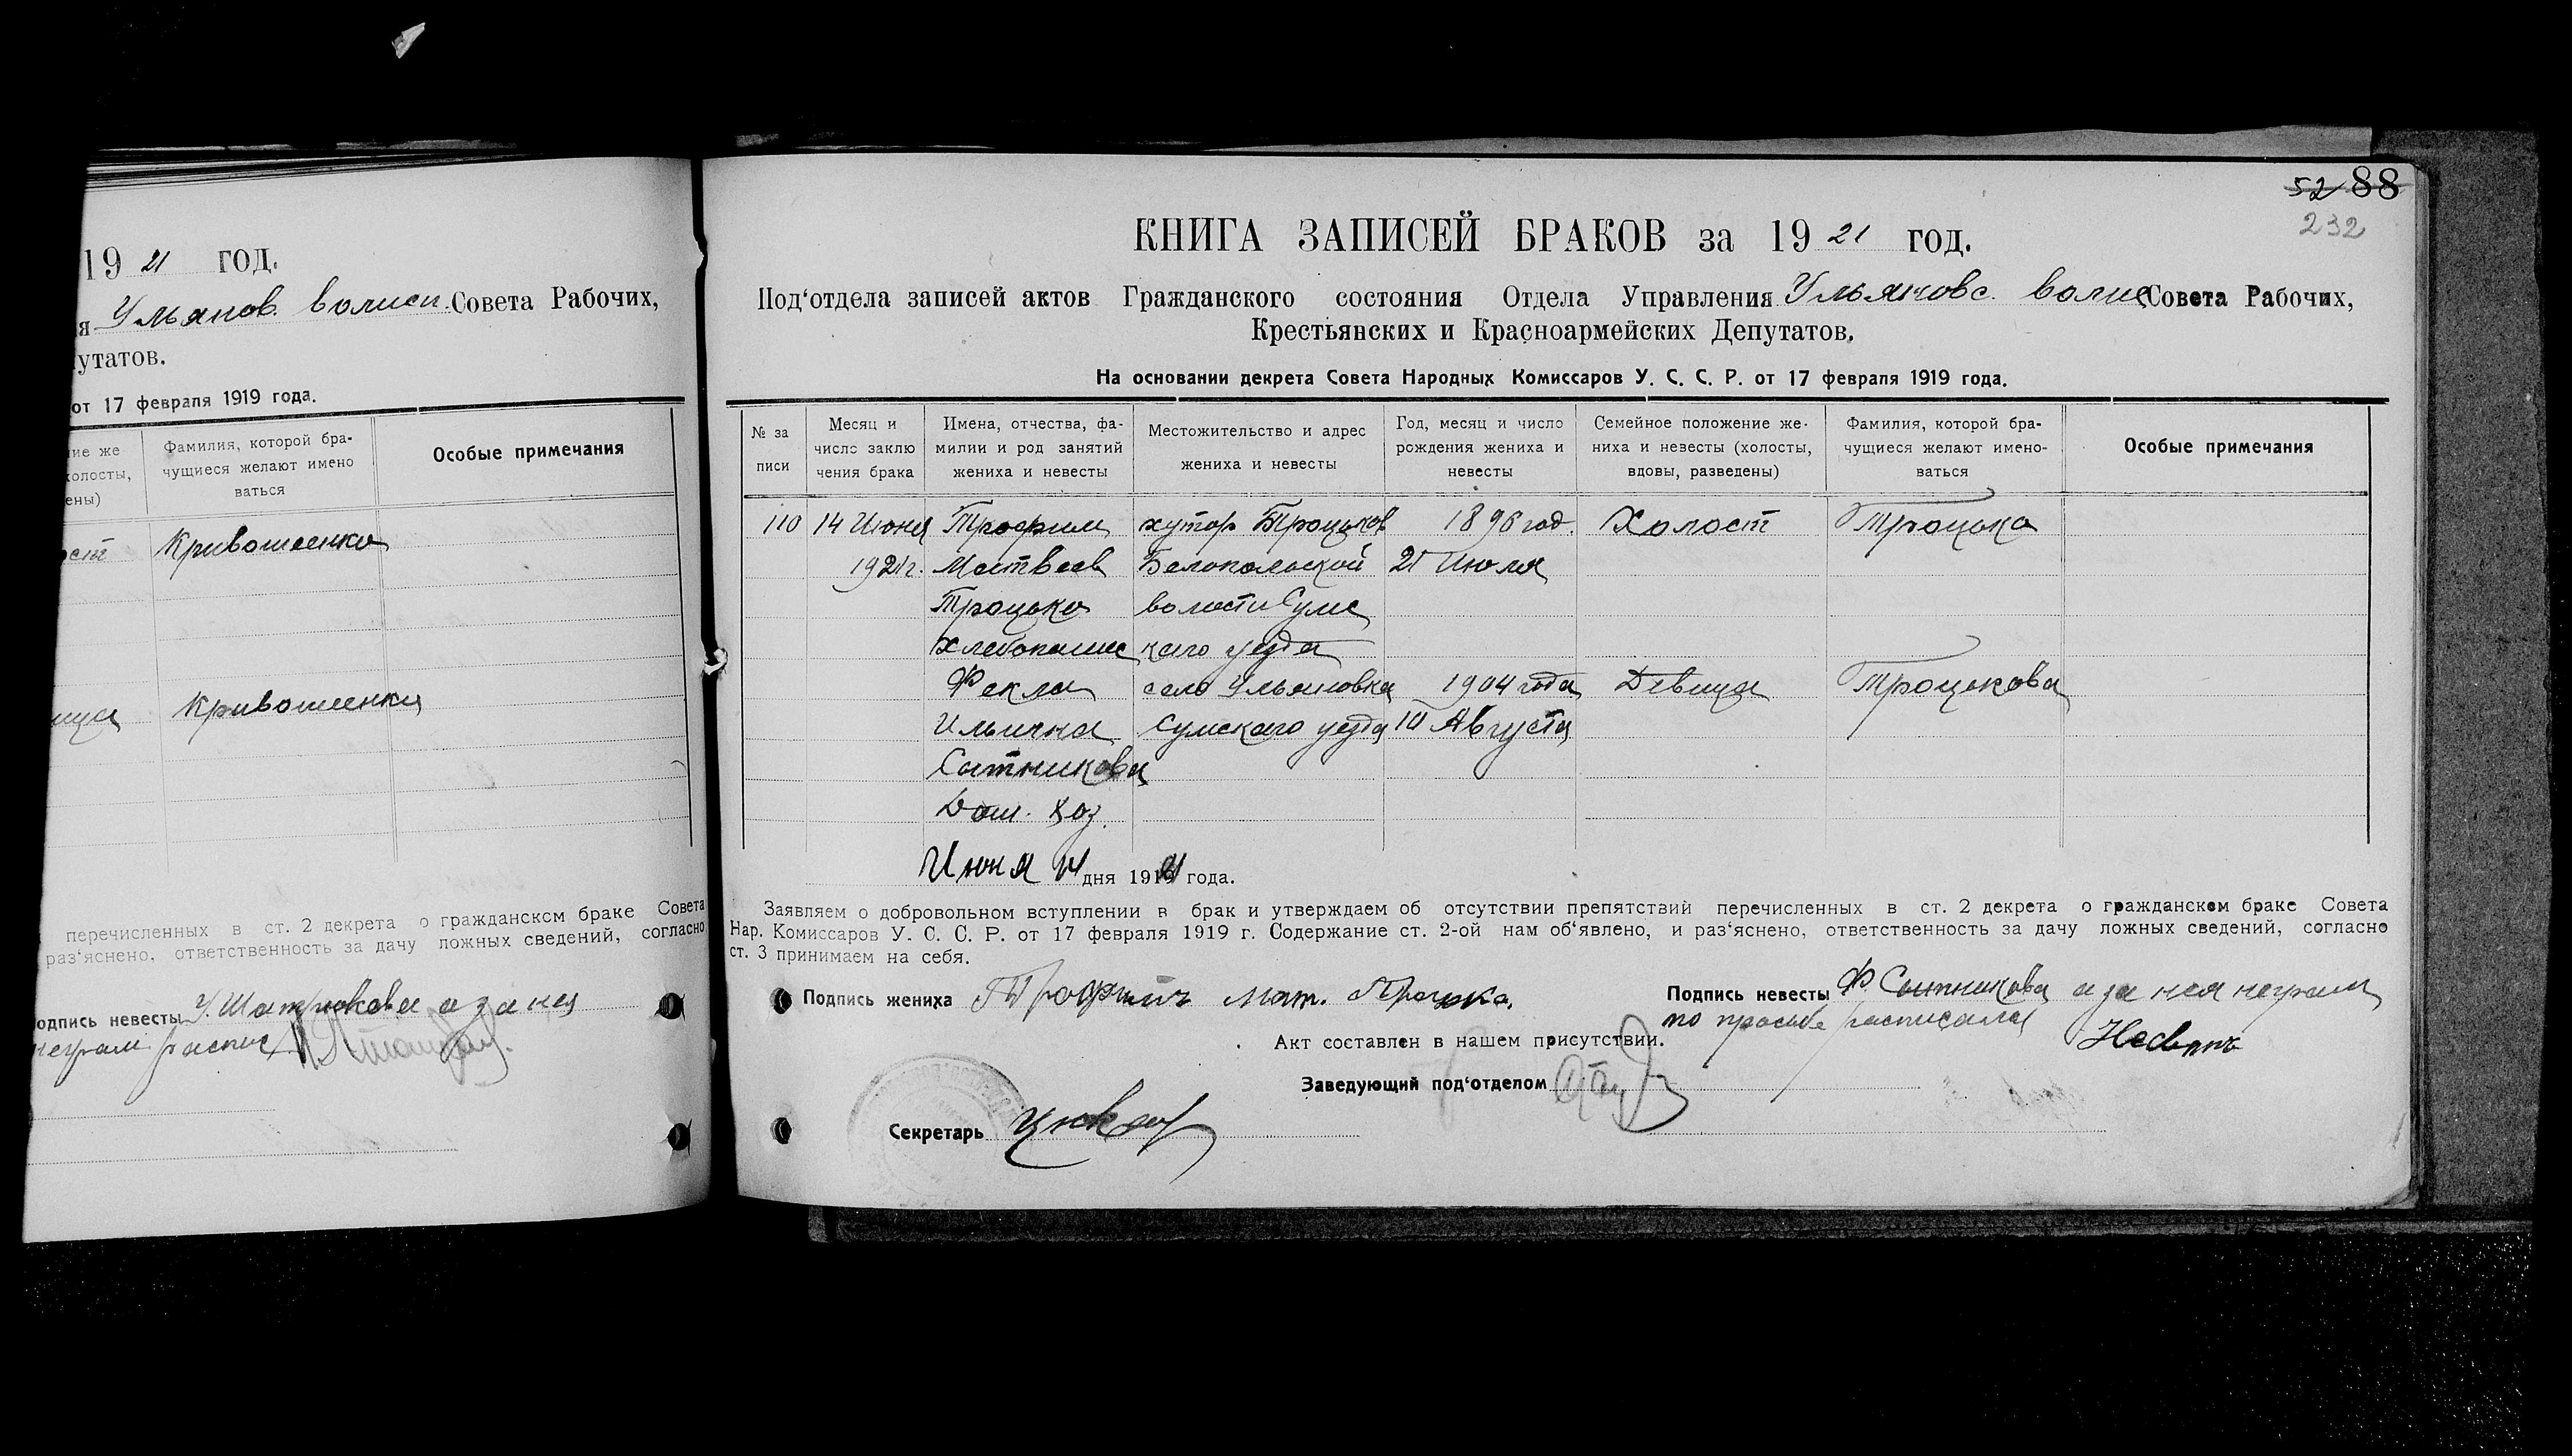 19 21 ГОД.
я Ульянов. волисп. Совета Рабочих,
путатов.
от 17 февраля 1919 года.
ние же
холосты,
ены)
Фамилия, которой бра-
чущиеся желают имено
ваться
Особые примечания
ост Кривошеенко
ица Кривошеенки
перечисленных в ст. 2 декрета о гражданском браке Совета
раз‘яснено, ответственность за дачу ложных сведений, согласно
одпись невесты а за нея
неграм. распис.
52 88
232
КНИГА ЗАПИСЕЙ БРАКОВ за 19 21 год.
Под‘отдела записей актов Гражданского состояния Отдела Управления Ульяновс. волис Совета Рабочих,
Крестьянских и Красноармейских Депутатов.
На основании декрета Совета Народных Комиссаров У. С. С. Р. от 17 февраля 1919 года.
№ за
писи
Месяц и
число заклю
чения брака
Имена, отчества, фа-
милии и род занятий
жениха и невесты
Местожительство и адрес
жениха и невесты
Год, месяц и число
рождения жениха и
невесты
Семейное положение же-
ниха и невесты (холосты,
вдовы, разведены)
Фамилия, которой бра-
чущиеся желают имено-
ваться
Особые примечания
110 14 Июня Трофим хутор Троцьков 1896 год. Холост Троцько
1921г. Матвеев Белопольской 21 Июля
Троцько волости Сумс
Хлебопашес каго уезда
Фекла село Ульяновка 1904 года Девица Троцькова
Ильична Сумскаго уезда 10 Августа
Сытникова
Дом. хоз.
Июня 14 дня 1921 года.
Заявляем о добровольном вступлении в брак и утверждаем об отсутствии препятствий перечисленных в ст. 2 декрета о гражданском браке Совета
Нар. Комиссаров У. С. С. Р. от 17 февраля 1919 г. Содержание ст. 2-ой нам об‘явлено, и раз‘яснено, ответственность за дачу ложных сведений, согласно
ст. 3 принимаем на себя.
Подпись жениха Трофим Мат. Троцько.
Подпись невесты Ф. Сытникова а за нея неграм
по просьбе расписался
Акт составлен в нашем присутствии.
Заведующий под‘отделом
Секретарь